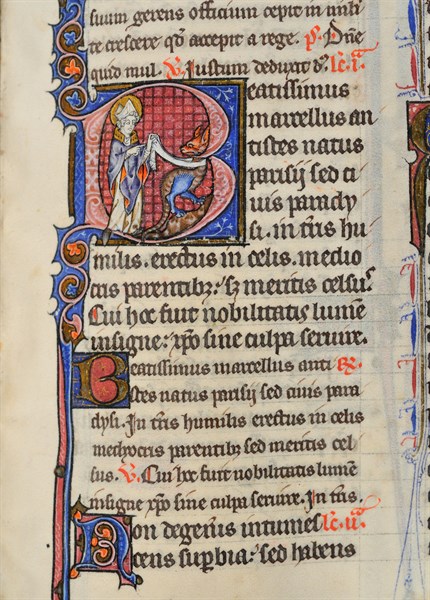 suum gerens officium cepit in nubi
te crescere qd accepit a rege. p. Dne
quid mul. V. Justum deduxit d. lc. i.
Beatissimus
marcellus an
tistes natus
parisij sed ci
uis parady
si. in tris hu
milis. erectus in celis. medio
cris parentibz: sz meritis celsus.
Cui hoc fuit nobilitatis lumen
insigne: xpo sine culpa seruire.
Beatissimus marcellus anti R.
stes natus parisij sed ciuis para
dysi. In tris humilis erectus in celis
mediocris parentibz sed meritis cel
sus. V. Cui hoc fuit nobilitatis lumen
insigne xpo sine culpa seruire. In tris.
Non degeneris intumes lc. ii.
cens supbia: sed habens